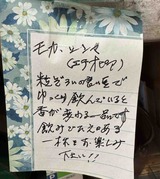 モカ・シダマ
(エチオピア)
粒ぞろいの豆で
ゆっくり飲んでいると
香が変わる一品です
飲みごたえのある
一杯をお楽しみ
下さい!!